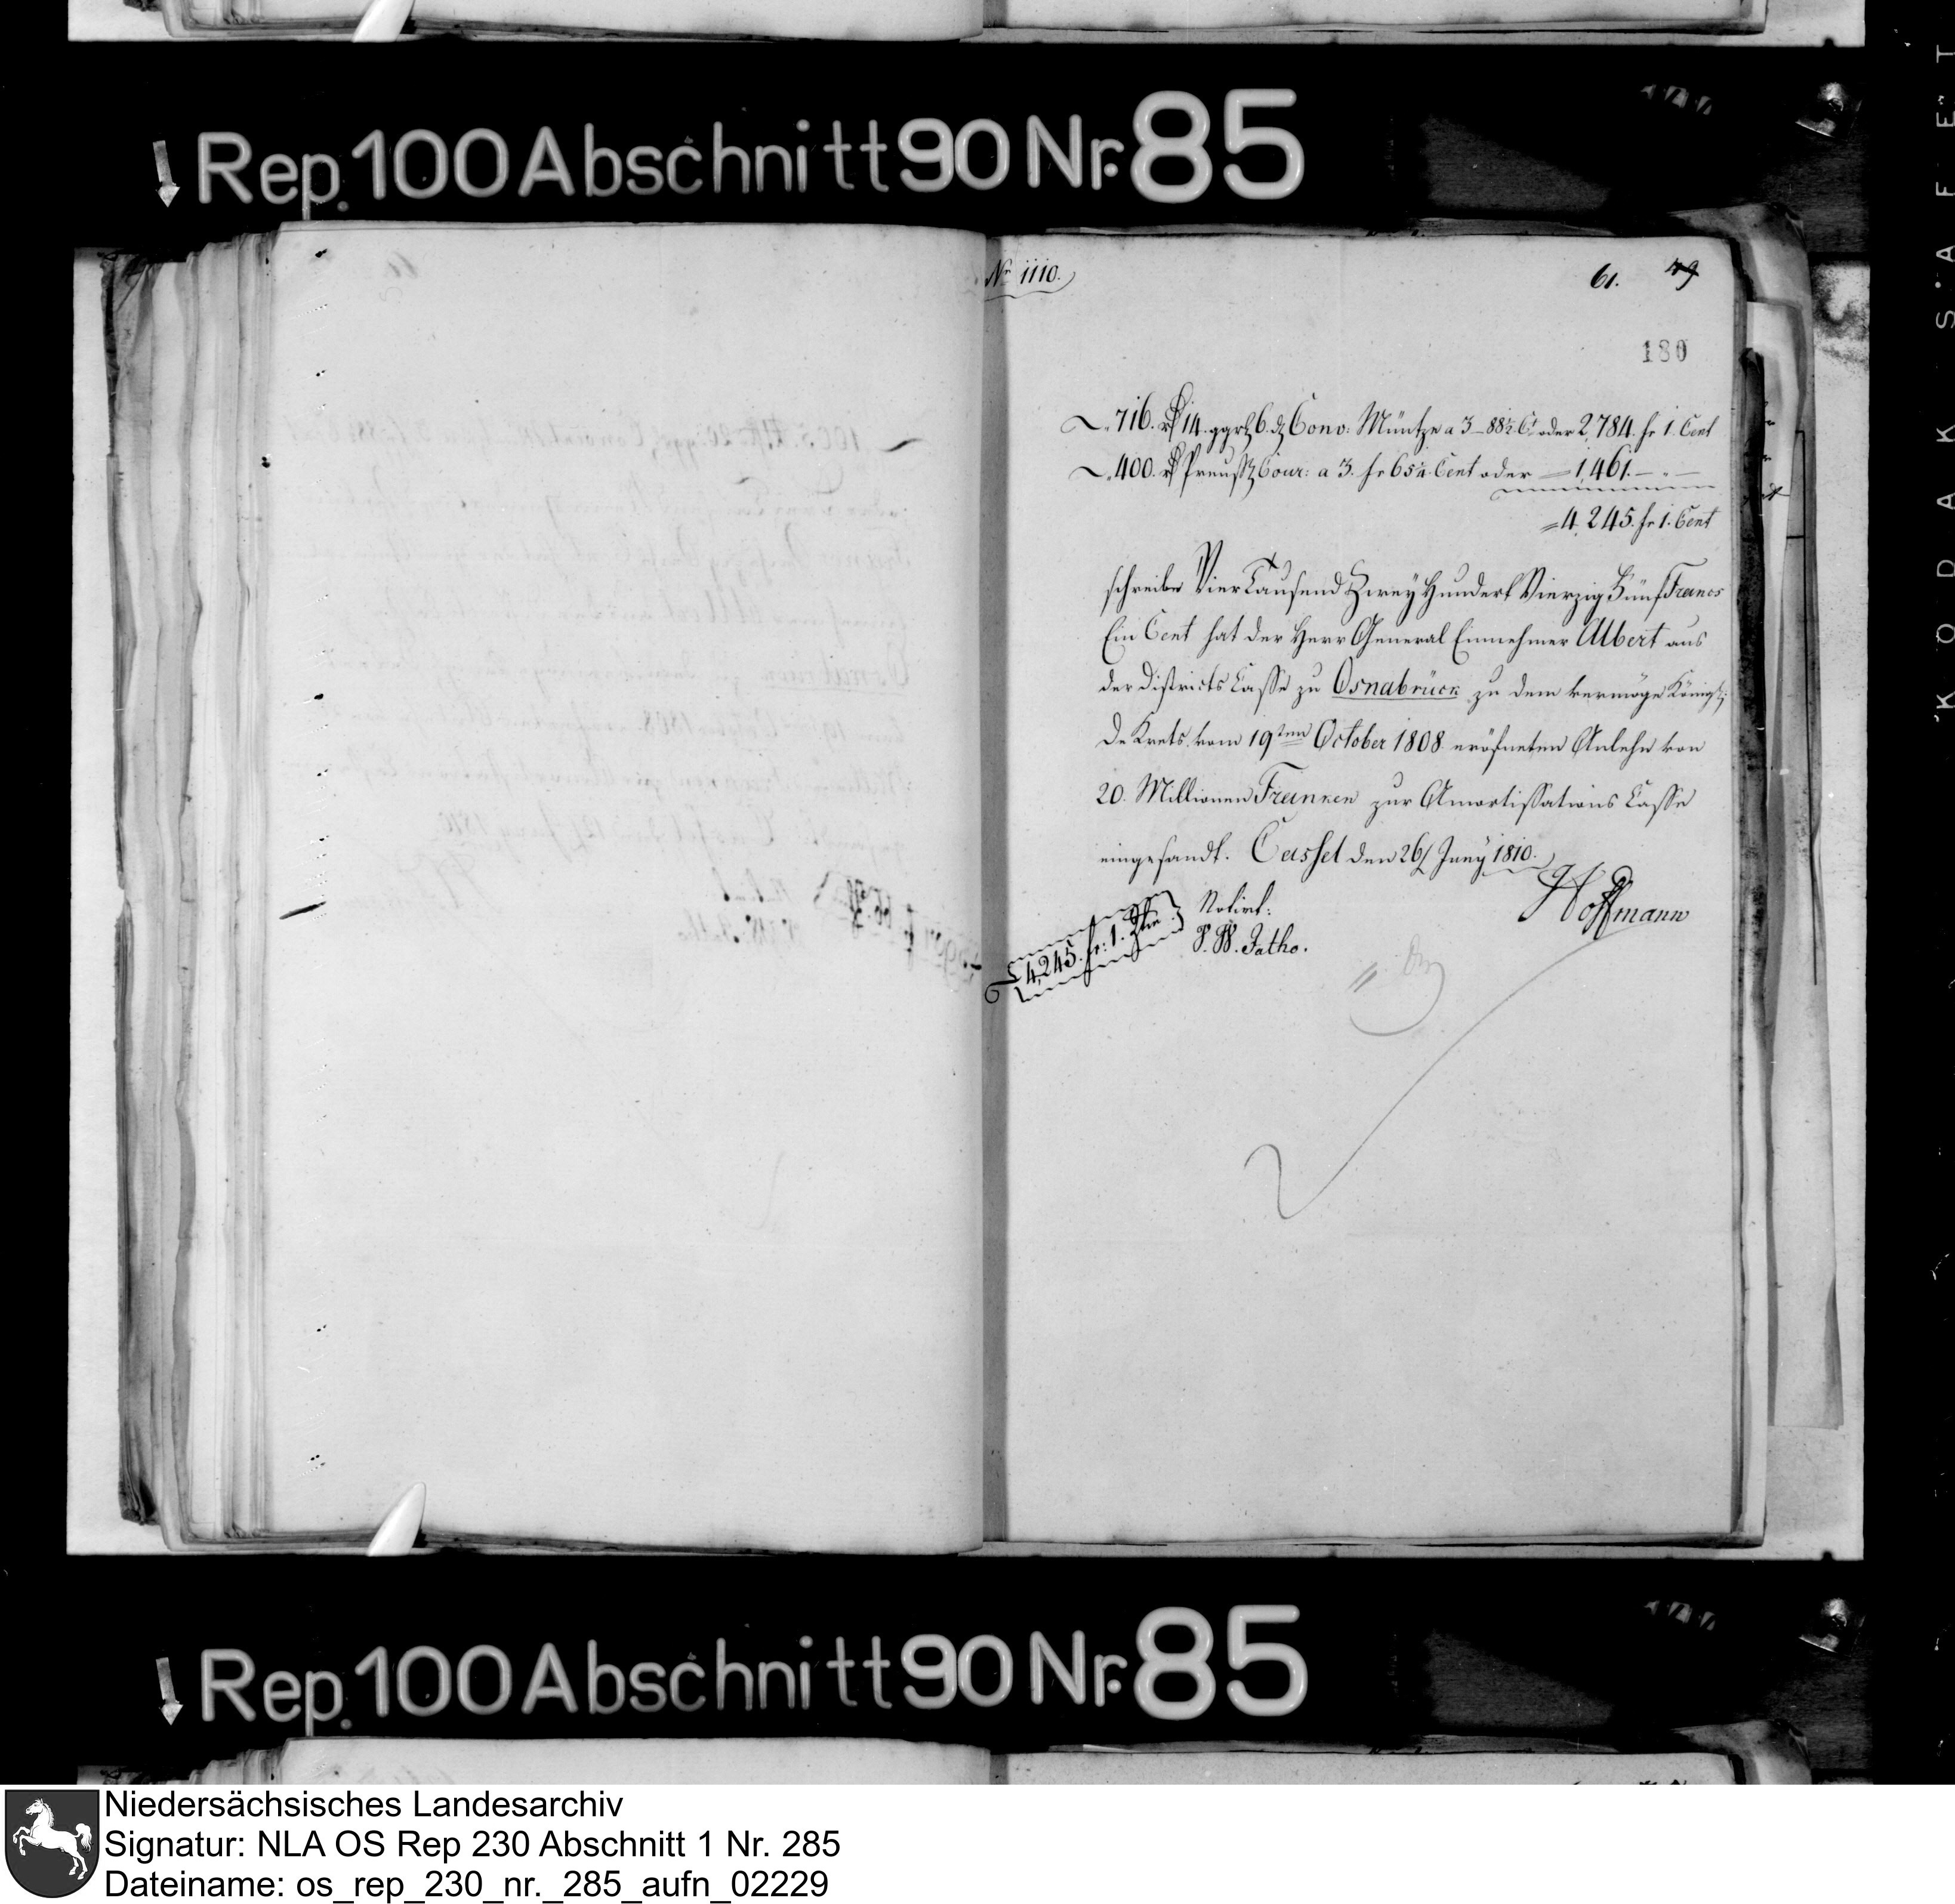 Rep. 100 Abschnitt 90 Nr. 85
Nro 1110.
61. 49
180
716. rß 14. ggrß 6. ₰ Conv: Müntze a 3–88½ Ct oder 2,784. fr 1. Cent
400. rß Preuß Cour: a 3. fr 65¼ Cent oder 1,461. – „ –
4,245. fr 1. Cent
schreibe Vier Tausend Zwey Hundert Vierzig Fünf Francs
Ein Cent hat der Herr General Einnehmer Albert aus
der Districts Casse zu Osnabrück zu dem vermöge Königl:
DeKrets vom 19ten October 1808 eröfneten Anlehn von
20. Millionen Franken zur Amortissations Casse
eingesandt. Cassel den 26t Juny 1810.
Hoffmann
4,245. fr: 1. Ctm
Notirt:
P. W. Jatho.
Rep. 100 Abschnitt 90 Nr. 85
KODAK SAFET
Niedersächsisches Landesarchiv
Signatur: NLA OS Rep 230 Abschnitt 1 Nr. 285
Dateiname: os_rep_230_nr._285_aufn_02229